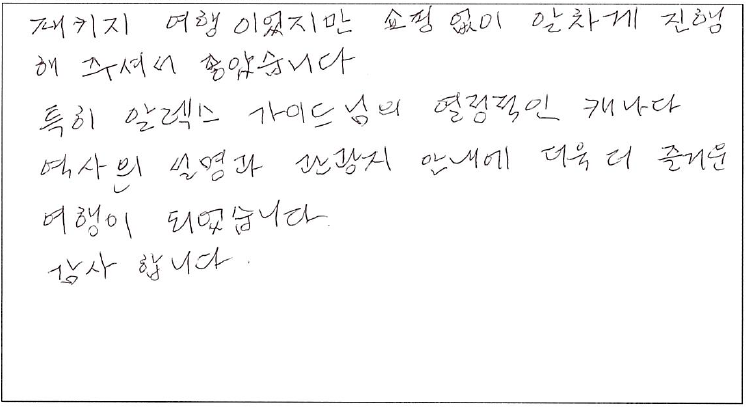 패키지 여행이었지만 쇼핑 없이 알차게 진행
해 주셔서 좋았습니다
특히 알렉스 가이드님의 열정적인 캐나다
역사의 설명과 관광지 안내에 더욱 더 즐거운
여행이 되었습니다.
감사 합니다.